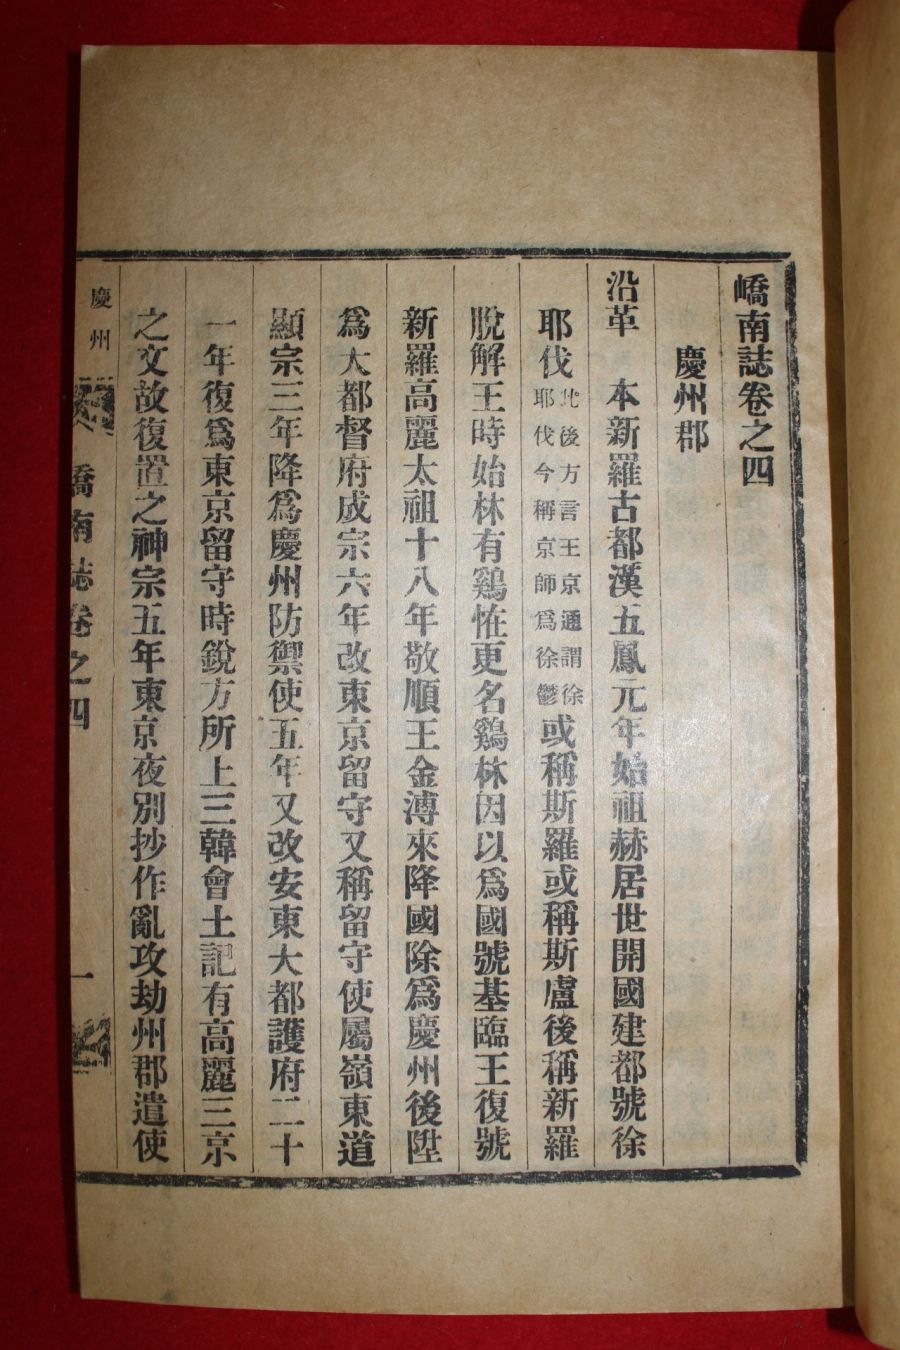 嶠南誌卷之四
慶州郡
沿革 本新羅古都漢五鳳元年始祖赫居世開國建都號徐
耶伐北後方言王京通謂徐耶伐今稱京師爲徐鬱或稱斯羅或稱斯盧後稱新羅
脫解王時始林有鷄恠更名鷄林因以爲國號基臨王復號
新羅高麗太祖十八年敬順王金溥來降國除爲慶州後陞
爲大都督府成宗六年改東京留守又稱留守使屬嶺東道
顯宗三年降爲慶州防禦使五年又改安東大都護府二十
一年復爲東京留守時銳方所上三韓會土記有高麗三京
之文故復置之神宗五年東京夜別抄作亂攻劫州郡遣使
慶州
嶠南誌卷之四
一